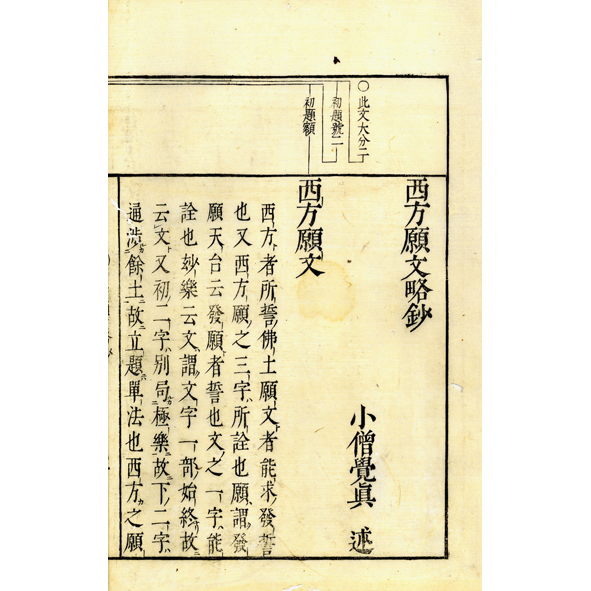 ○此文大分二
初題號二
初題額
西方願文略鈔
小僧覺眞 述
西方願文
西方者所誓佛土願文者能求發誓
也又西方願之三字所詮也願謂發
願天台云發願者誓也文之一字能
詮也玅樂云文謂文字一部始終故
云文又初二字別局極樂故下二字
通涉餘土故立題單法也西方之願